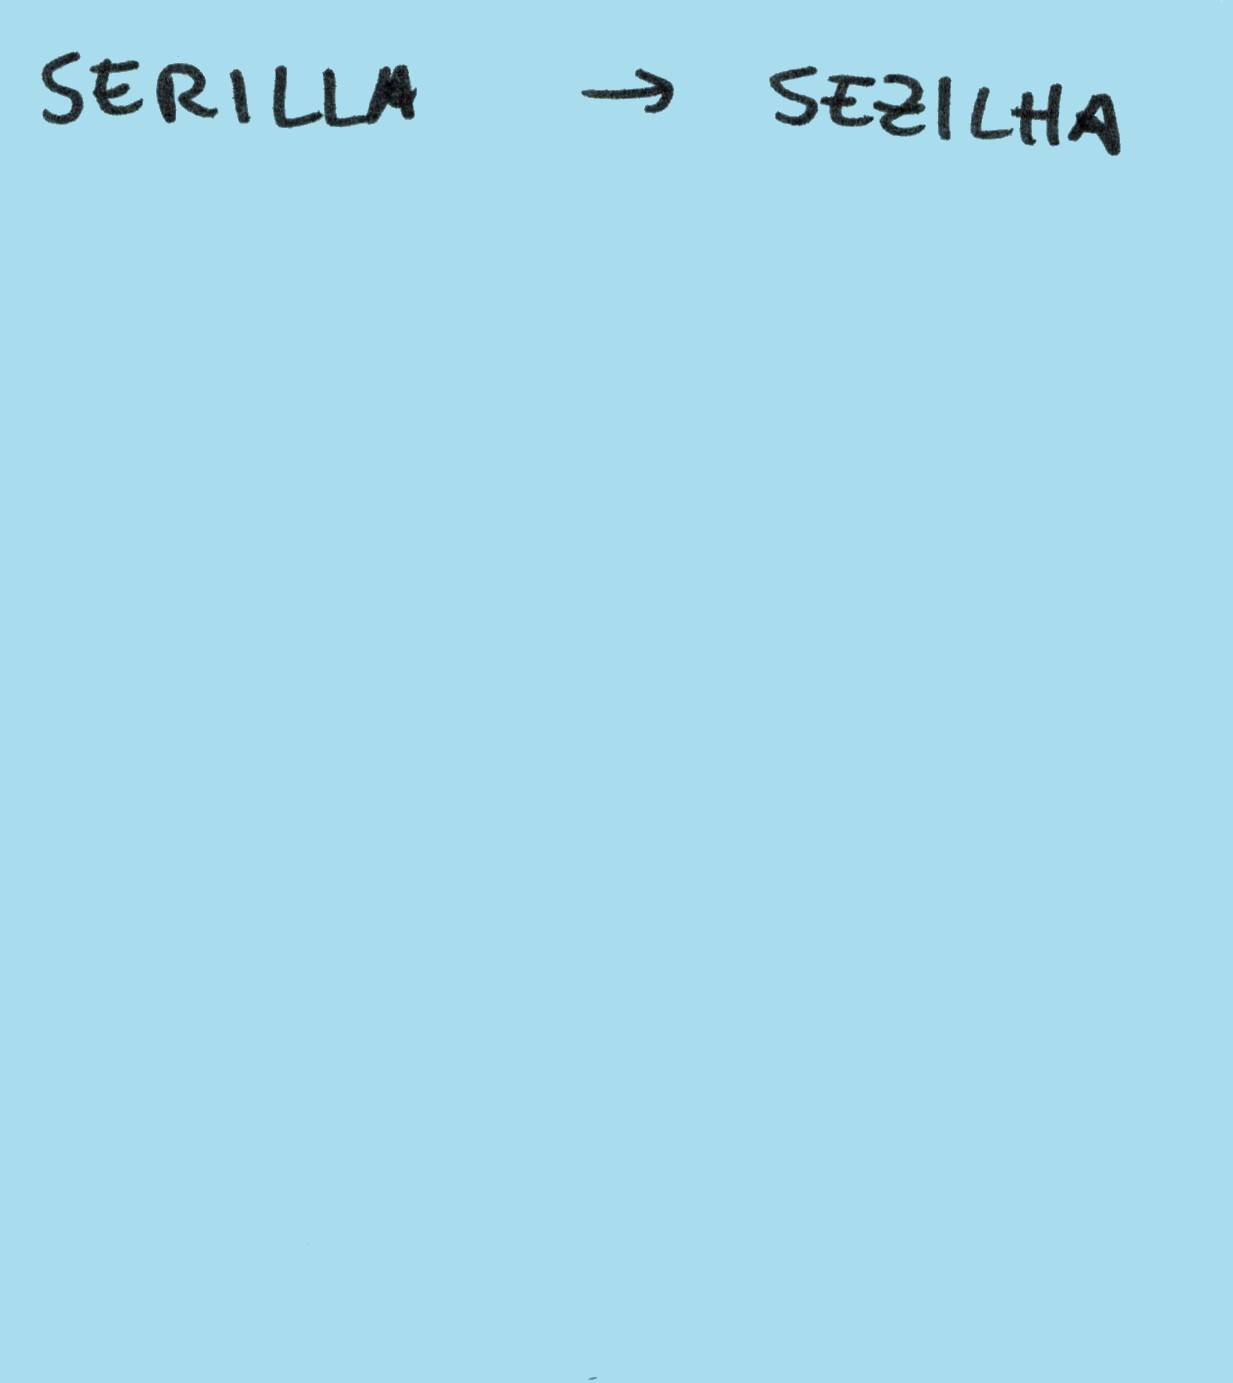 SERILLA → SEZILHA